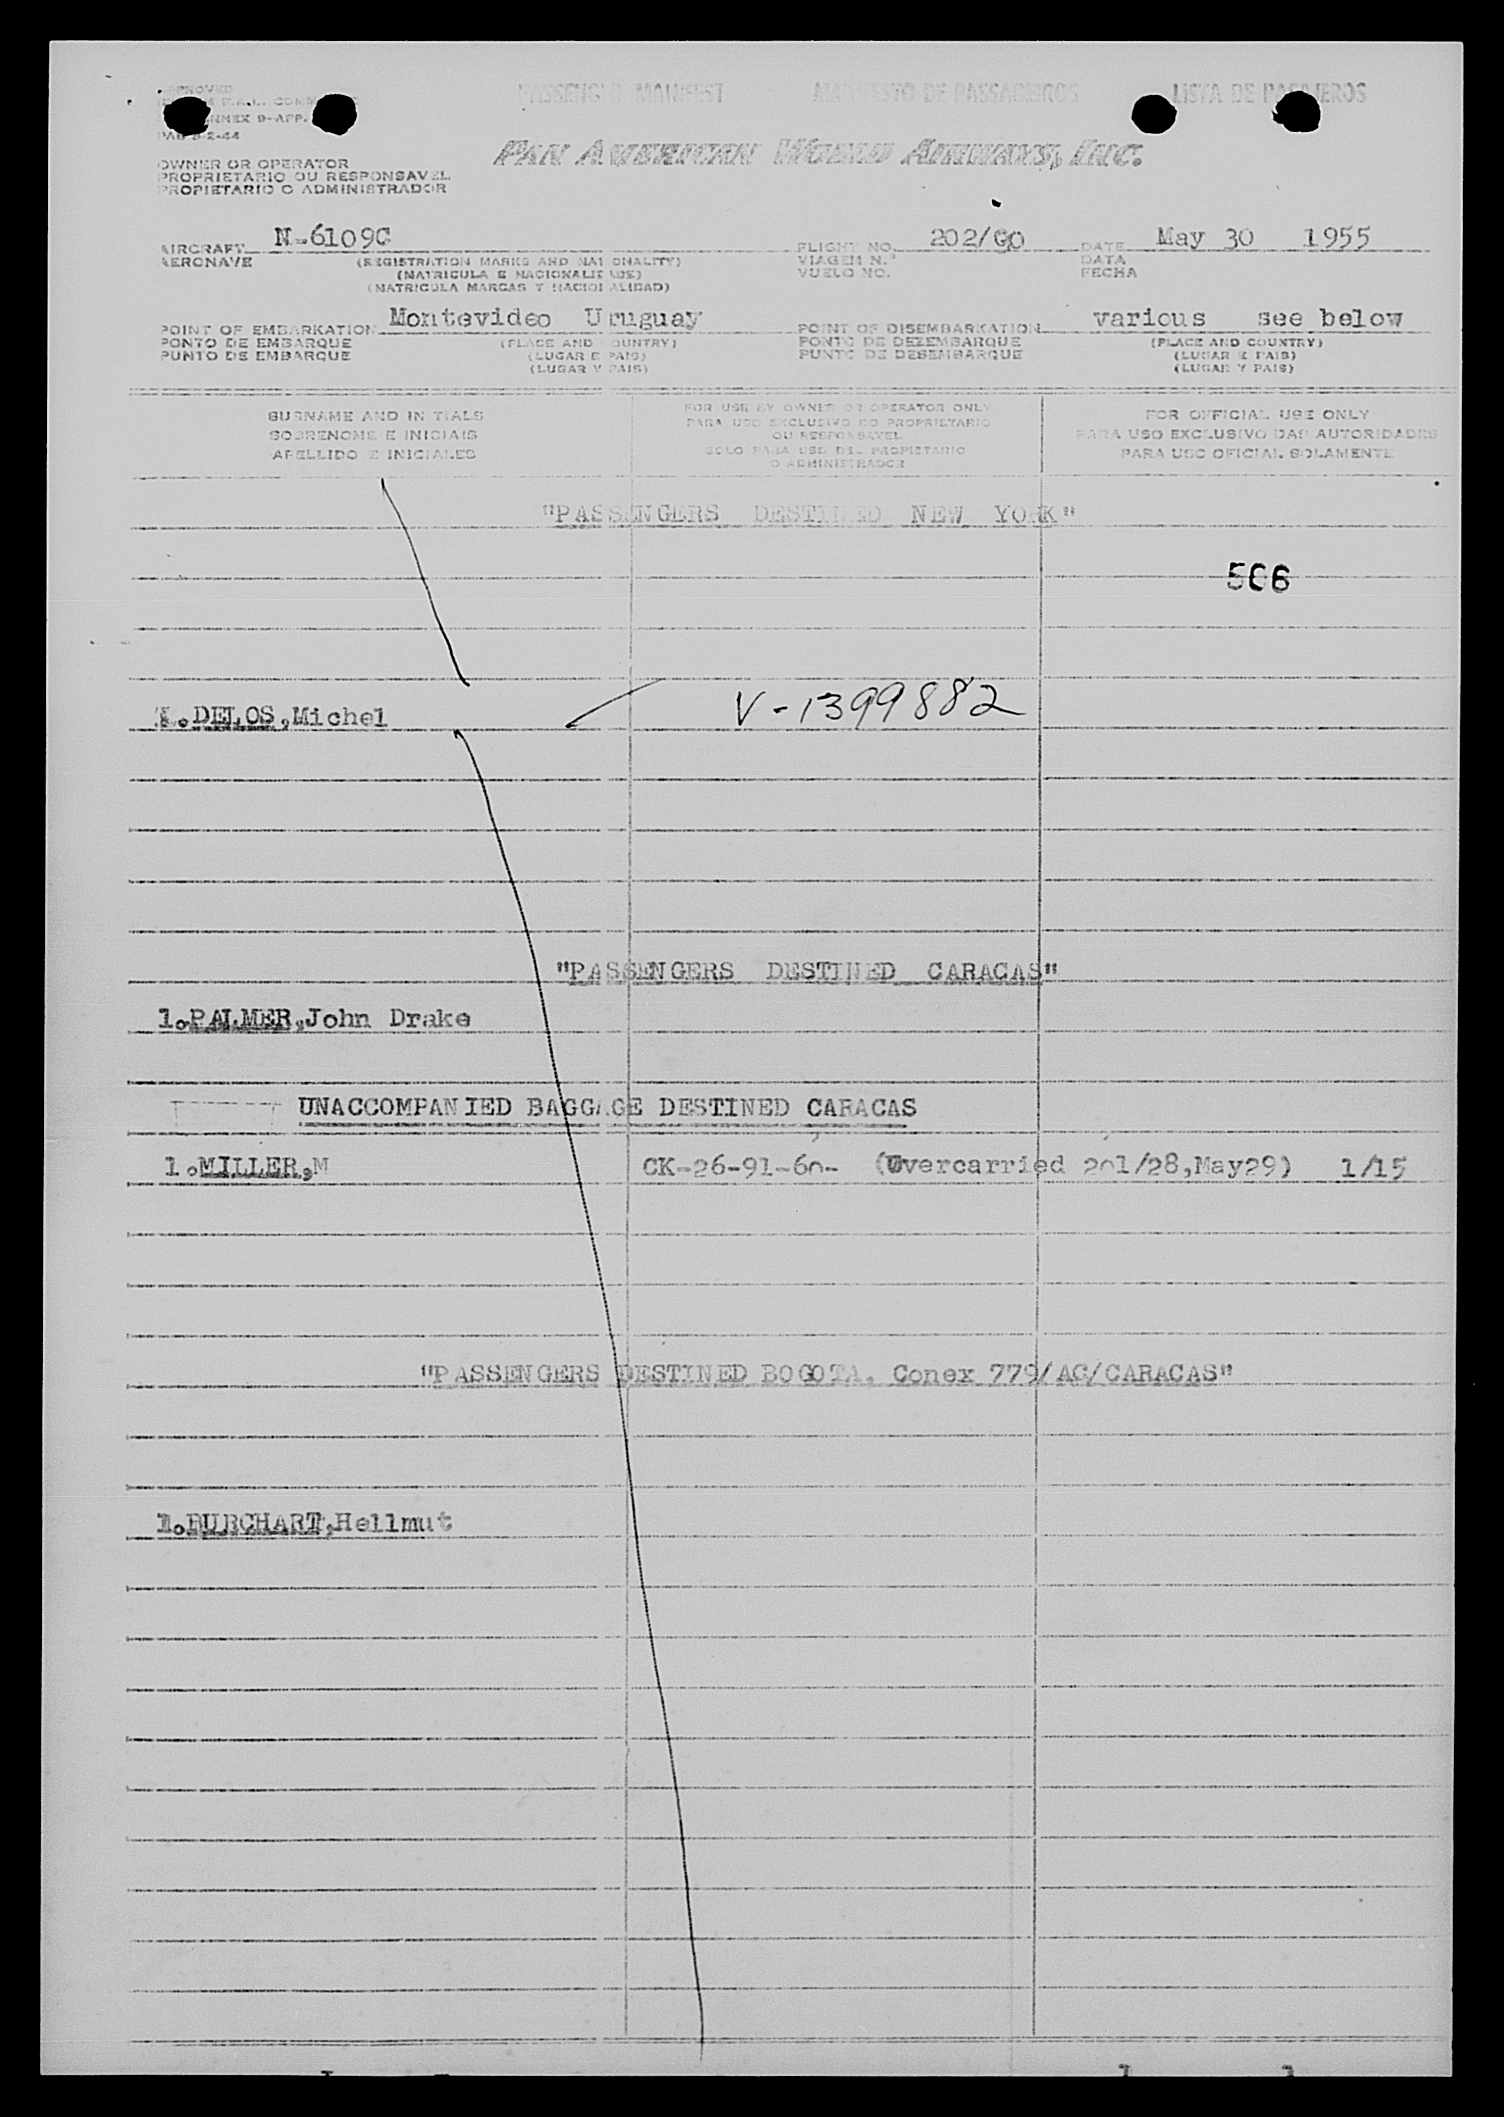 PASSENGER MANIFEST MANIFESTO DE PASSAGEIROS LISTA DE PASAJEROS
PAN AMERICAN WORLD AIRWAYS, INC.
OWNER OR OPERATOR
PROPRIETARIO OU RESPONSAVEL
PROPIETARIO O ADMINISTRADOR
AIRCRAFT N-6109C FLIGHT NO. 202/ DATE May 30 1955
AERONAVE (REGISTRATION MARKS AND NATIONALITY) VIAGEM N.º DATA
(MATRICULA E NACIONALIDADE) VUELO NO. FECHA
(MATRICULA MARCAS Y NACIONALIDAD)
POINT OF EMBARKATION Montevideo Uruguay POINT OF DISEMBARKATION various see below
PONTO DE EMBARQUE (PLACE AND COUNTRY) PONTO DE DEZEMBARQUE (PLACE AND COUNTRY)
PUNTO DE EMBARQUE (LUGAR E PAIS) PUNTO DE DESEMBARQUE (LUGAR E PAIS)
(LUGAR Y PAIS) (LUGAR Y PAIS)
SURNAME AND INITIALS FOR USE BY OWNER OR OPERATOR ONLY FOR OFFICIAL USE ONLY
SOBRENOME E INICIAIS PARA USO EXCLUSIVO DO PROPRIETARIO PARA USO EXCLUSIVO DAS AUTORIDADES
OU RESPONSAVEL
APELLIDO E INICIALES SOLO PARA USO DEL PROPIETARIO PARA USO OFICIAL SOLAMENTE
O ADMINISTRADOR
"PASSENGERS DESTINED NEW YORK"
506
1.DELOS,Michel V-1399882
"PASSENGERS DESTINED CARACAS"
1.PALMER,John Drake
UNACCOMPANIED BAGGAGE DESTINED CARACAS
1.MILLER,M CK-26-91-60- (Overcarried 201/28,May29) 1/15
"PASSENGERS DESTINED BOGOTA. Conex 779/AC/CARACAS"
1.BURCHART,Hellmut